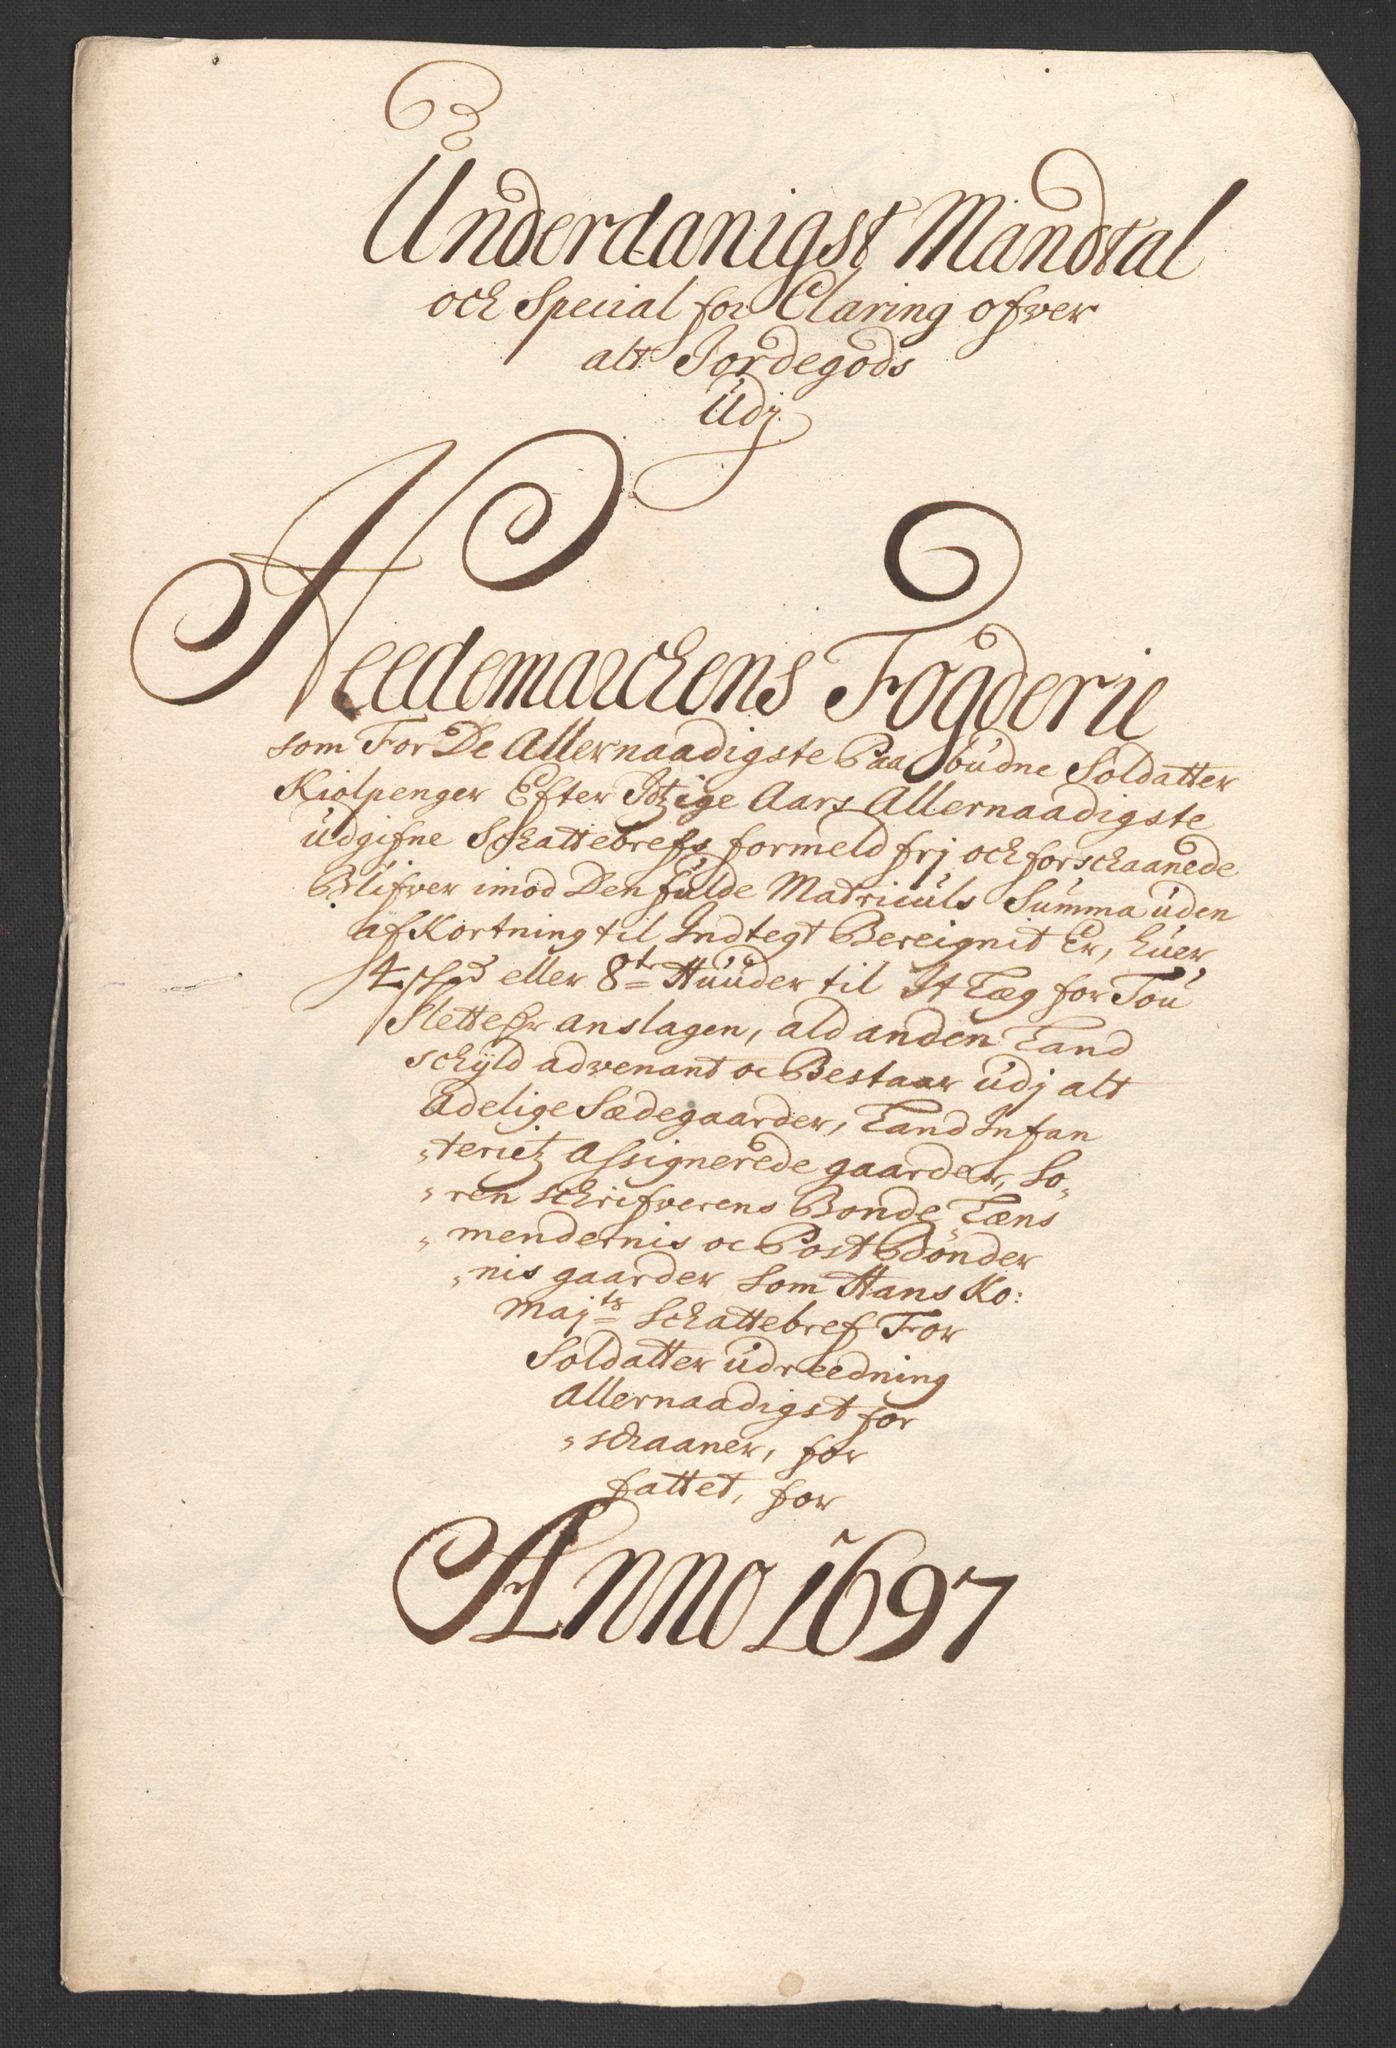 Underdanigst Mandtal
och Special for Claring ofver
alt Jordegods
Udj
Heedemarckens Fogderie
som For De Allernaadigste Paa budne Soldatter
Kiolpenger Efter Itzige Aars Allernaadigste
udgifne Schattebrefs formeld frj och forschaanede
Blifver imod Den fulde Matriculs Summa uden
afKortning til Indtegt Bereignit Er, huer
4 eller 8te Huuder til It Læg for Tou
Slette anslagen, ald anden Land
schyld advenant oc Bestaar udj alt
Adelige Sædegaarder, Land Infan
"terietz Assignerede gaarder, So„
"ren schrifverens Bonde, Læns
"mendernis oc Post Bønder
"nis gaarder som Hans Ko:
Majts Schattebref For
Soldatter udreedning
Allernaadigst for
"schaaner, for
fattet, for
Anno 1697